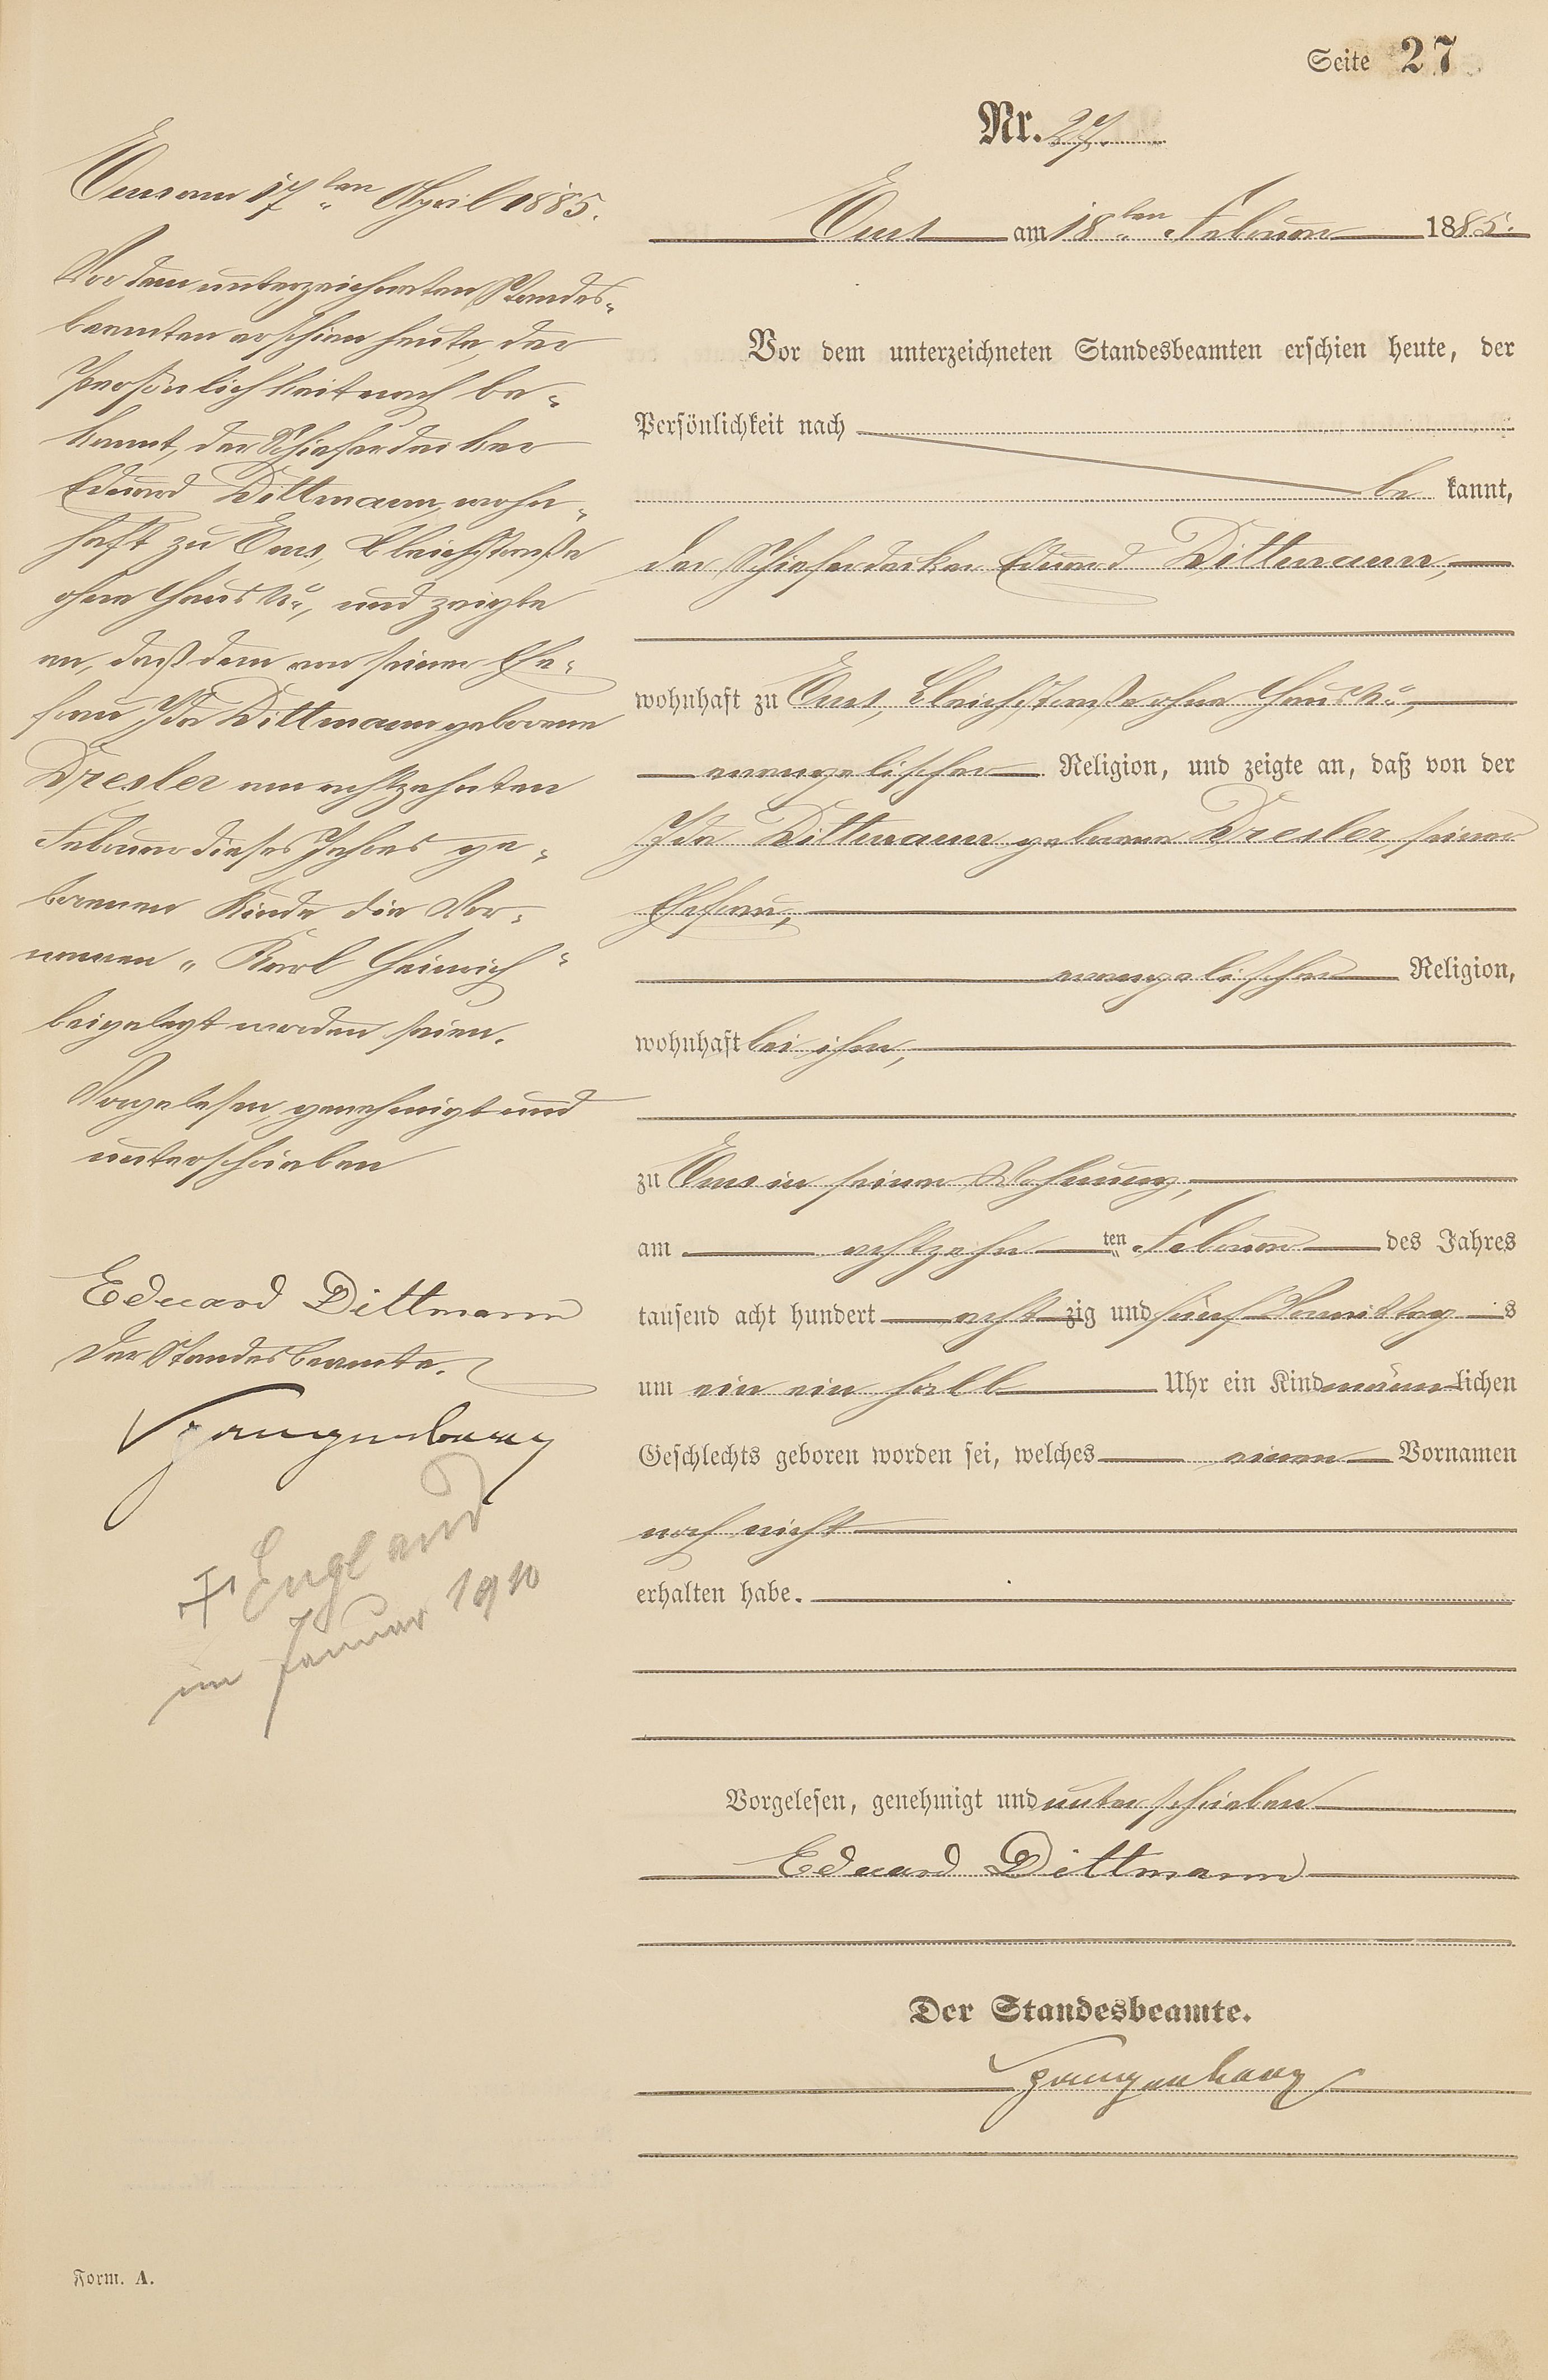 Seite 27
Nr. 27.
Ems am 18ten Februar 1885.
Vor dem unterzeichneten Standesbeamten erschien heute, der
Persönlichkeit nach
be kannt,
der Schieferdecker Eduard Dittmann,
wohnhaft zu Ems, Bleichstraße ohne Haus No,
evangelischer Religion, und zeigte an, daß von der
Ida Dittmann geborene Dresler, seiner
Ehefrau,
evangelischer Religion,
wohnhaft bei ihm,
zu Ems in seiner Wohnung,
am achtzehn ten Februar des Jahres
tausend acht hundert acht zig und fünf Vormittag s
um ein ein halb Uhr ein Kind männ lichen
Geschlechts geboren worden sei, welches einen Vornamen
noch nicht
erhalten habe.
Vorgelesen, genehmigt und unterschrieben
Eduard Dittmann
Der Standesbeamte.
Ems am 17ten April 1885.
Vor dem unterzeichneten Standes-
beamten erschien heute, der
Persönlichkeit nach be-
kannt, der Schieferdecker
Eduard Dittmann, wohn-
haft zu Ems, Bleichstraße
ohne Haus No, und zeigte
an, daß dem von seiner Ehe-
frau Ida Dittmann geborene
Dresler am achtzehnten
Februar dieses Jahres ge-
borenen Kinde die Vor-
namen „Karl Heinrich"
beigelegt worden seien.
Vorgelesen, genehmigt und
unterschrieben
Eduard Dittmann
Der Standesbeamte.
† England
im Januar 1910
Form. A.